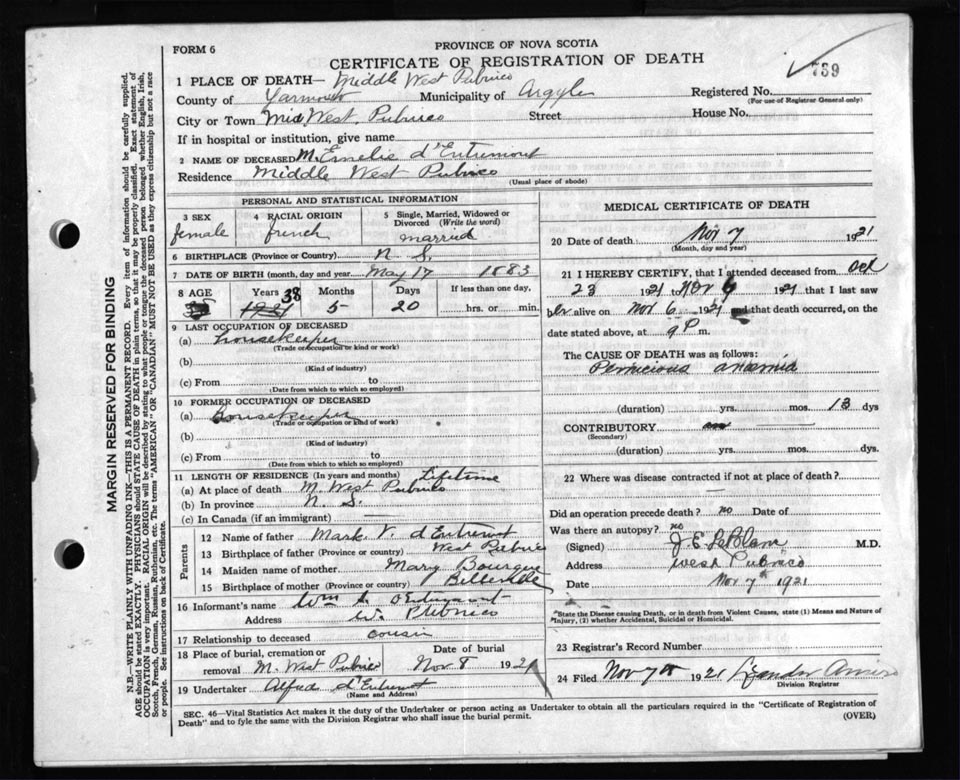 PROVINCE OF NOVA SCOTIA
FORM 6
CERTIFICATE OF REGISTRATION OF DEATH
739
1 PLACE OF DEATH— Middle West Pubnico
County of Yarmouth Municipality of Argyle Registered No.
(For use of Registrar General only)
City or Town Mid West Pubnico Street House No.
If in hospital or institution, give name
2 NAME OF DECEASED M. Emelie d'Entremont
Residence Middle West Pubnico
(Usual place of abode)
PERSONAL AND STATISTICAL INFORMATION
3 SEX 4 RACIAL ORIGIN 5 Single, Married, Widowed or Divorced (Write the word)
female french married
6 BIRTHPLACE (Province or Country) N. S.
7 DATE OF BIRTH (month, day and year) May 17 1883
8 AGE Years 38 Months Days If less than one day,
5 20 hrs. or min.
9 LAST OCCUPATION OF DECEASED
(a) housekeeper
(Trade or occupation or kind or work)
(b)
(Kind of industry)
(c) From to
(Date from which to which so employed)
10 FORMER OCCUPATION OF DECEASED
(a) housekeeper
(Trade or occupation or kind of work)
(b)
(Kind of industry)
(c) From to
(Date from which to which so employed)
11 LENGTH OF RESIDENCE (In years and months) Lifetime
(a) At place of death M. West Pubnico
(b) In province N. S.
(c) In Canada (if an immigrant) —
Parents
12 Name of father Mark V. d'Entremont
13 Birthplace of father (Province or country) West Pubnico
14 Maiden name of mother Mary Bourque
15 Birthplace of mother (Province or country) Belleville
16 Informant's name Wm d'Entremont
Address W. Pubnico
17 Relationship to deceased cousin
18 Place of burial, cremation or removal M. West Pubnico Date of burial Nov 8 1921
19 Undertaker Alfred d'Entremont
(Name and Address)
MEDICAL CERTIFICATE OF DEATH
20 Date of death Nov 7 1921
(Month, day and year)
21 I HEREBY CERTIFY, that I attended deceased from Oct
23 1921 to Nov 6 1921 that I last saw
her alive on Nov 6 1921 and that death occurred, on the
date stated above, at 9 P m.
The CAUSE OF DEATH was as follows:
Pernicious anaemia
(duration) yrs. mos. 13 dys
CONTRIBUTORY
(Secondary)
(duration) yrs. mos. dys.
22 Where was disease contracted if not at place of death?
—
Did an operation precede death? no Date of
Was there an autopsy? no
(Signed) J. E. LeBlanc M.D.
Address West Pubnico
Date Nov 7th 1921
*State the Disease causing Death, or in death from Violent Causes, state (1) Means and Nature of Injury, (2) whether Accidental, Suicidal or Homicidal.
23 Registrar's Record Number
24 Filed Nov 7th 1921
Division Registrar
SEC. 46—Vital Statistics Act makes it the duty of the Undertaker or person acting as Undertaker to obtain all the particulars required in the "Certificate of Registration of
Death" and to fyle the same with the Division Registrar who shall issue the burial permit. (OVER)
MARGIN RESERVED FOR BINDING
N.B.—WRITE PLAINLY WITH UNFADING INK—THIS IS A PERMANENT RECORD. Every item of information should be carefully supplied.
AGE should be stated EXACTLY. PHYSICIANS should STATE CAUSE OF DEATH in plain terms, so that it may be properly classified. Exact statement of
OCCUPATION is very important. RACIAL ORIGIN will be described by stating to what people or tongue the deceased person belonged whether English, Irish,
Scotch, French, German, Russian, Ruthenian, etc. The terms "AMERICAN" OR "CANADIAN" MUST NOT BE USED as they express citizenship but not a race
or people. See instructions on back of Certificate.